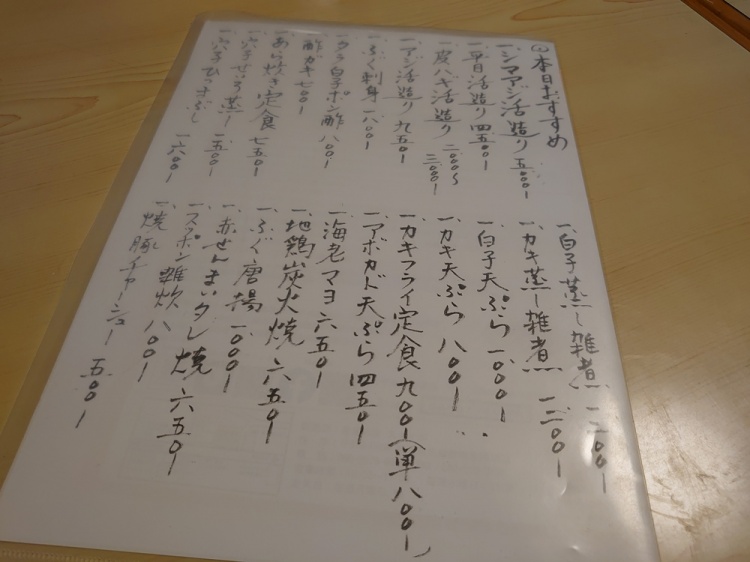 本日おすすめ
一、シマアジ活造り 五、〇〇〇ー
一、平目活造り 四五〇〇ー
一、皮ハギ活造り 二〇〇〇〜三、〇〇〇ー
一、アジ活造り 九五〇ー
一、ふぐ刺身 一、八〇〇ー
一、タラ白子ポン酢 八〇〇ー
一、酢ガキ 七〇〇ー
一、あら炊き定食 七五〇ー
一、穴子せいろ蒸し 一、五〇〇ー
一、穴子ひつまぶし 一、六〇〇ー
一、白子蒸し雑煮 一、二〇〇ー
一、カキ蒸し雑煮 一、二〇〇ー
一、白子天ぷら 一、〇〇〇ー
一、カキ天ぷら 八〇〇ー
一、カキフライ定食 九〇〇ー(単八〇〇ー)
一、アボカド天ぷら 四五〇ー
一、海老マヨ 六五〇ー
一、地鶏炭火焼 六五〇ー
一、ふぐ唐揚 一、〇〇〇ー
一、赤ぜんまいタレ焼 六五〇ー
一、スッポン雑炊 八〇〇ー
一、焼豚チャーシュー 五〇〇ー